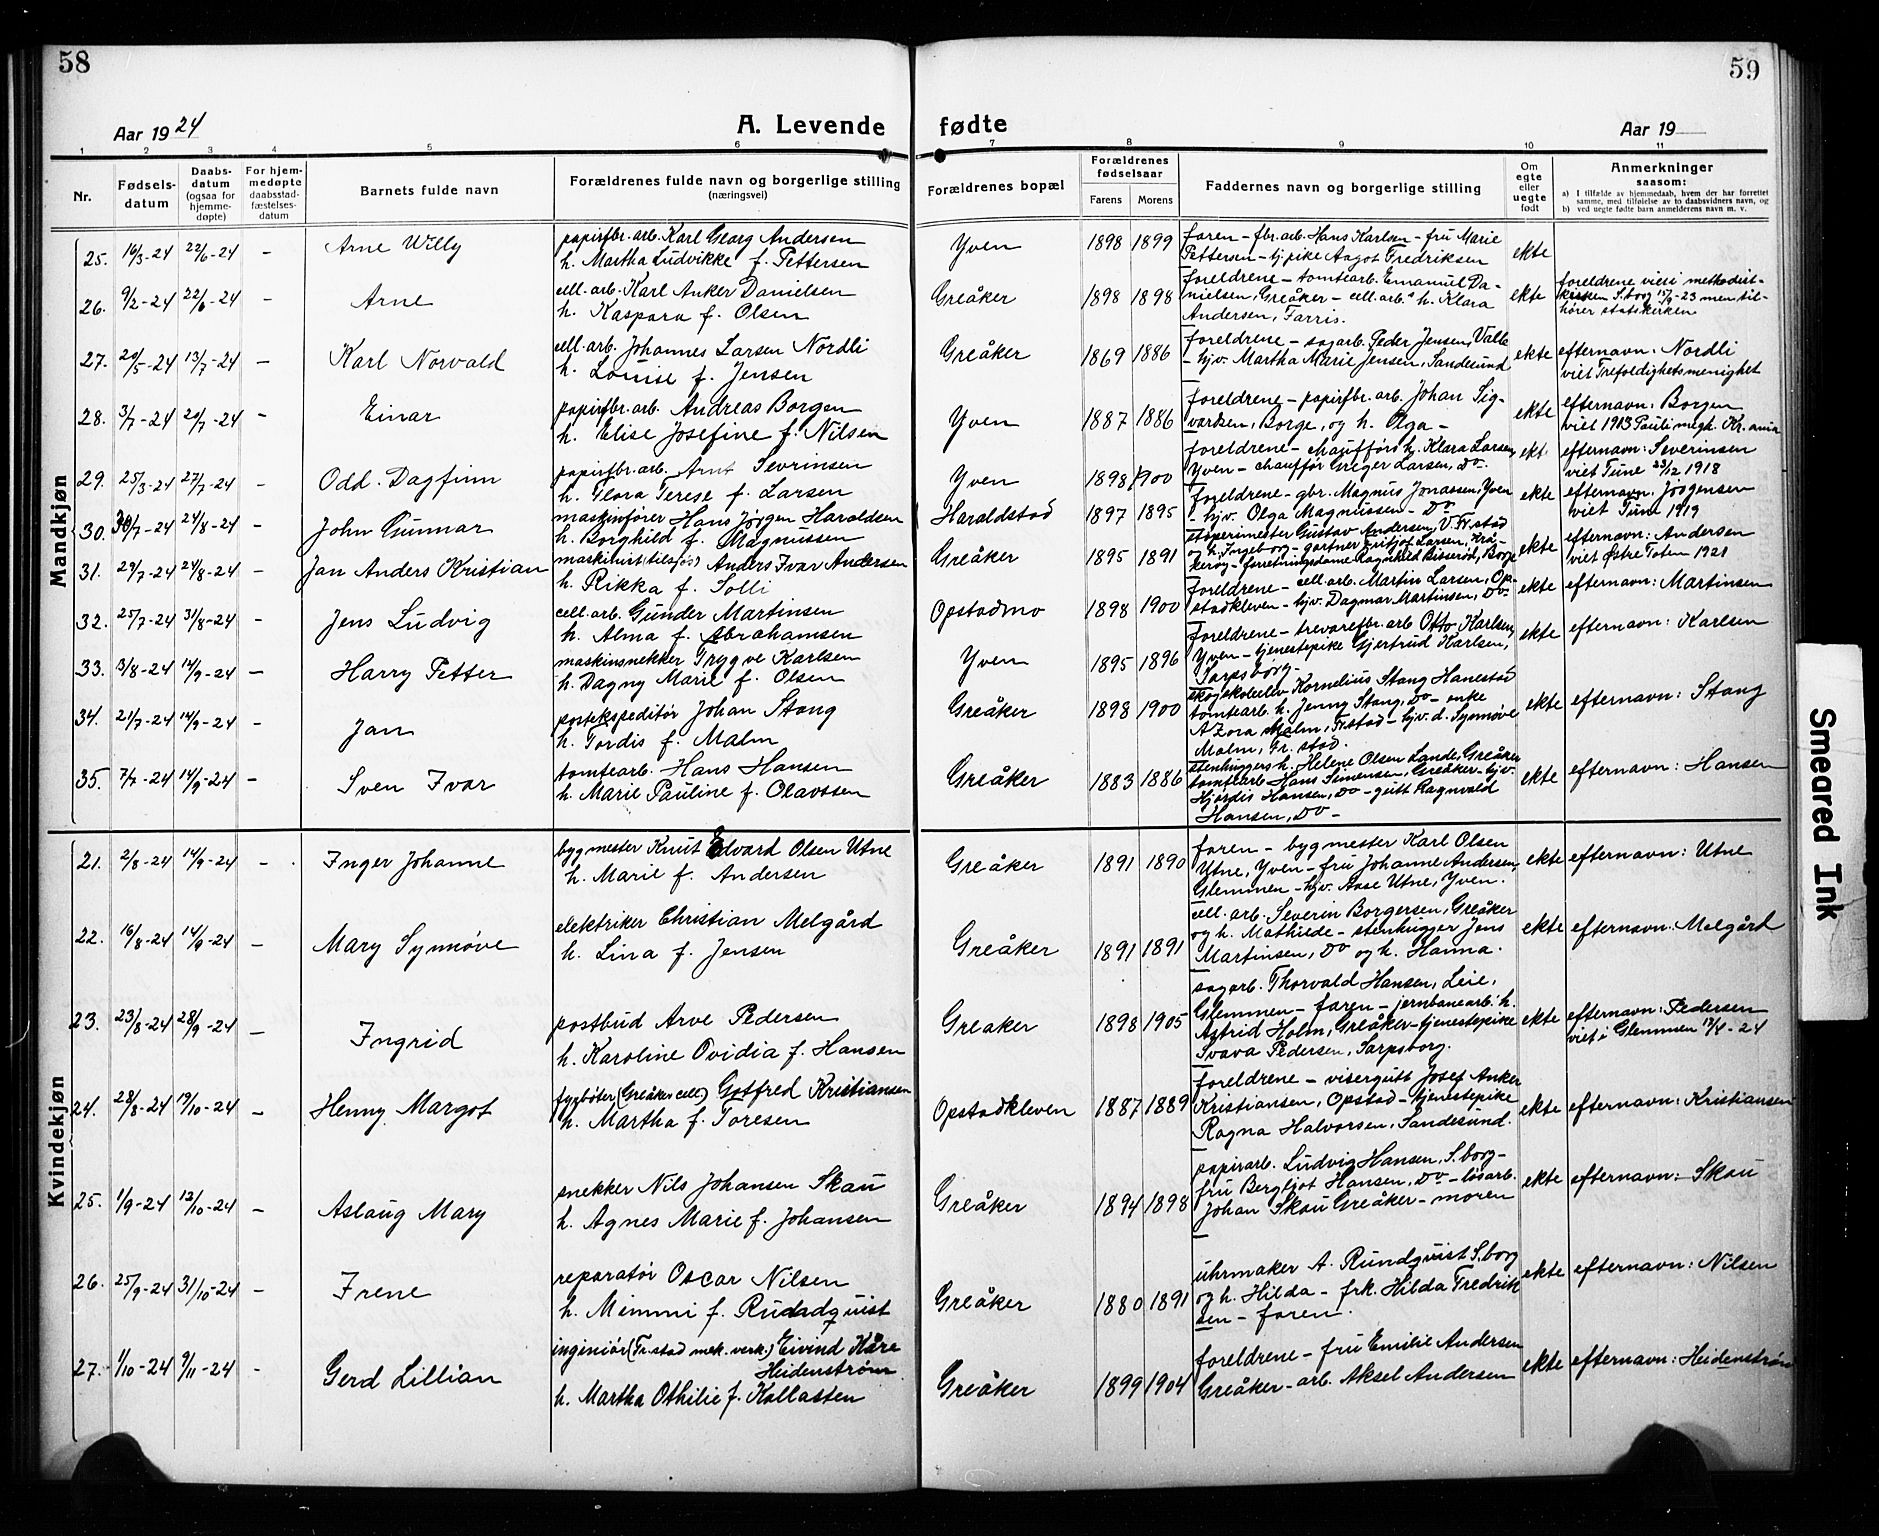 58
59
Aar 1924
A. Levende fødte
Aar 19
1 2 3 4 5 6 7 8 9 10 11
Nr.
Fødsels-
datum
Daabs-
datum
(ogsaa for
hjemme-
døpte)
For hjem-
medøpte
daabsstad-
fæstelses-
datum
Barnets fulde navn
Forældrenes fulde navn og borgerlige stilling
(næringsvei)
Forældrenes bopæl
Forældrenes
fødselsaar
Farens
Morens
Faddernes navn og borgerlige stilling
Om
egte
eller
uegte
født
Anmerkninger
saasom:
a) I tilfælde av hjemmedaab, hvem der har forrettet
samme, med tilføielse av to daabsvidners navn, og
b) ved uegte fødte barn anmelderens navn m. v.
Mandkjøn
25. 16/3-24 22/6-24 – Arne Willy
papirfbr.arb. Karl Georg Andersen
h. Martha Ludvikke f. Pettersen
Yven 1898 1899
faren – fbr.arb. Hans Karlsen – fru Marie
Pettersen – tj.pike Aagot Fredriksen
ekte
26. 9/2-24 22/6-24 – Arne
cell.arb. Karl Anker Danielsen
h. Kaspara f. Olsen
Greåker 1898 1898
foreldrene – tomtearb. Emanuel Da-
nielsen, Greåker – cell.arb.s h. Klara
Andersen, Farris.
ekte
foreldrene viet i methodist-
kirken S.borg 15/9-23 men til-
hører statskirken
27. 20/5-24 13/7-24 – Karl Norvald
cell.arb. Johannes Larsen Nordli
h. Louise f. Jensen
Greåker 1869 1886
foreldrene – sagarb. Peder Jensen, Valle
– hjv. Martha Marie Jensen, Sandesund
ekte
efternavn: Nordli
viet Trefoldighetsmenighet
28. 3/7-24 20/7-24 – Einar
papirfbr.arb. Andreas Borgen
h. Elise Josefine f. Nilsen
Yven 1887 1886
foreldrene – papirfbr.arb. Johan Sig-
vartsen, Borge, og h. Olga –
ekte
efternavn: Borgen
viet 1913 Pauli mgh. Kr.ania
29. 25/3-24 27/7-24 – Odd. Dagfinn
papirfbr.arb. Arnt Sevrinsen
h. Flora Terese f. Larsen
Yven 1898 1900
foreldrene – chaufførs h. Klara Larsen,
Yven – chauffør Greger Larsen, do.
ekt.
efternavn: Severinsen
viet Tune 23/12 1918
30. 30/7-24 24/8-24 – John Gunnar
maskinfører Hans Jørgen Haraldsen
h. Borghild f. Magnussen
Haraldstad 1897 1895
foreldrene – gbr. Magnus Jonassen, Yven
– hjv. Olga Magnussen – Do
ekte
efternavn: Jørgensen
viet Tune 1919
31. 29/7-24 24/8-24 – Jan Anders Kristian
maskinist (tilsjøs) Anders Ivar Andersen
h. Rikka f. Solli
Greåker 1895 1891
støperimester Gustav Andersen, V. Fr.stad
og h. Ingeborg – gartner Fritjof Larsen, Krå-
kerøy – forretningsdame Ragnhild Bisserød, Borge
ekte
efternavn: Andersen
viet Østre Toten 1921
32. 25/7-24 31/8-24 – Jens Ludvig
cell.arb. Gunder Martinsen
h. Alma f. Abrahamsen
Opstadmo 1898 1900
foreldrene – cell.arb. Martin Larsen, Op-
stadkleven – hjv. Dagmar Martinsen, Do.
ekte
efternavn: Martinsen
33. 3/8-24 14/9-24 – Harry Petter
maskinsnekker Trygve Karlsen
h. Dagny Marie f. Olsen
Yven 1895 1896
foreldrene – trevarefbr.arb Otto Karlsen,
Yven – tjenestepike Gjertrud Karlsen,
Sarpsborg –
ekte
efternavn: Karlsen
34. 21/7-24 14/9-24 – Jan
postekspeditør Johan Stang
h. Tordis f. Malm
Greåker 1898 1900
skogskoleelev Kornelius Stang Hanestad
tomtearb. h. Jenny Stang, Do – enke
A Zora Malm, Fr.stad – hjv. d. Synnøve
Malm, Fr. stad.
ekte
efternavn: Stang
35. 7/7-24 14/9-24 – Sven Ivar
tomtearb. Hans Hansen
h. Marie Pauline f. Olavssen
Greåker 1883 1886
stenhuggers h. Helene Olsen Lande, Greåker
tomtearb. Hans Simensen, Greåker – hjv.
Hjørdis Hansen, Do – gutt Ragnvald
Hansen, Do –
ekte
efternavn: Hansen
Kvindekjøn
21. 2/8-24 14/9-24 – Inger Johanne
bygmester Knut Edvard Olsen Utne
h. Marie f. Andersen
Greåker 1891 1890
faren – bygmester Karl Olsen
Utne, Yven – fru Johanne Andersen,
Glemmen – hjv. Aase Utne, Yven.
ekte
efternavn: Utne
22. 16/8-24 14/9-24 – Mary Synnøve
elektriker Christian Melgård
h. Lina f. Jensen
Greåker 1891 1891
cell. arb. Severin Borgersen, Greåker
og h. Mathilde – stenhugger Jens
Martinsen, Do og h. Hanna.
ekte
efternavn: Melgård
23. 23/8-24 28/9-24 – Ingrid
postbud Arve Pedersen
h. Karoline Ovidia f. Hansen
Greaker 1898 1905
sagarb. Thorvald Hansen, Leie,
Glemmen – faren – jernbanearb. h.
Astrid Holm, Greåker – tjenestepike
Svava Pedersen, Sarpsborg.
ekte
efternavn: Pedersen
viet i Glemmen 12/4-24
24. 28/8-24 19/10-24 – Henny Margot
fyrbøter (Greåker cell) Gotfred Kristiansen
h. Martha f. Toresen
Opstadkleven 1887 1889
foreldrene – visergutt Josef Anker
Kristiansen, Opstad – tjenestepike
Ragna Halvorsen, Sandesund.
ekte
efternavn: Kristiansen
25. 1/9-24 12/10-24 – Aslaug Mary
snekker Nils Johansen Skau
h. Agnes Marie f. Johansen
Greåker 1894 1898
papirarb. Ludvig Hansen, S.borg –
fru Bergljot Hansen, Do – løsarb.
Johan Skau Greåker – moren
ekte
efternavn: Skau
26. 25/9-24 31/10-24 – Irene
reparatør Oscar Nilsen
h. Mimmi f. Rundquist
Greåker 1880 1891
uhrmaker A. Rundquist S.borg
og h. Hilda – frk. Hilda Fredrik
sen – faren.
ekte
efternavn: Nilsen
27. 1/10-24 9/11-24 – Gerd Lillian
ingeniør (Fr.stad mek. verk.) Eivind Kåre
Heidenstrøm
h. Martha Othilie f. Kollasten
Greåker 1899 1904
foreldrene – fru Emilie Andersen
Greåker – arb. Aksel Andersen
ekte
efternavn: Heidenstrøm
Smeared Ink